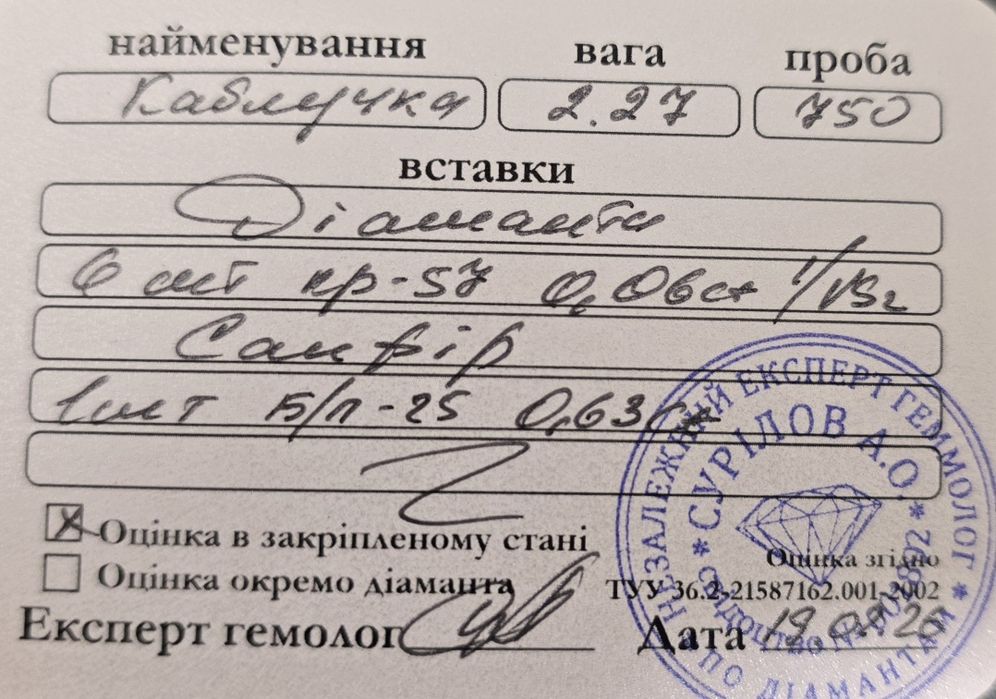 найменування вага проба
Каблучка 2.27 750
вставки
Діаманти
6 шт кр-57 0,06ct
Сапфір
1 шт Б/п-25 0,63ct
X Оцінка в закріпленому стані
Оцінка окремо діаманта
Оцінка згідно
ТУУ 36.2-21587162.001-2002
Експерт гемолог
Дата
НЕЗАЛЕЖНИЙ ЕКСПЕРТ ГЕММОЛОГ * ПО ДІАМАНТАМ *
* СУРІЛОВ А.О. *